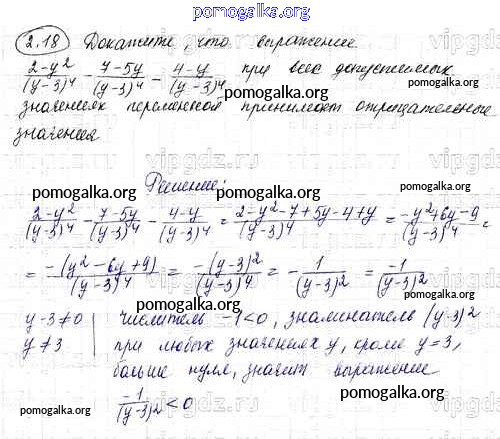 pomogalka.org
2.18 Докажите, что выражение
\frac{2-y^2}{(y-3)^4} - \frac{7-5y}{(y-3)^4} - \frac{4-y}{(y-3)^4} при всех допустимых
значениях переменной принимает отрицательные
значения
vipgdz.ru
pomogalka.org
Решение:
\frac{2-y^2}{(y-3)^4} - \frac{7-5y}{(y-3)^4} - \frac{4-y}{(y-3)^4} = \frac{2-y^2-7+5y-4+y}{(y-3)^4} = \frac{-y^2+6y-9}{(y-3)^4} =
= \frac{-(y^2-6y+9)}{(y-3)^4} = \frac{-(y-3)^2}{(y-3)^4} = -\frac{1}{(y-3)^2} = \frac{-1}{(y-3)^2}
y-3≠0 | числитель -1<0, знаминатель (y-3)^2
y≠3 | при любых значениях y, кроме y=3,
больше нуля, значит выражение
\frac{-1}{(y-3)^2} < 0
pomogalka.org